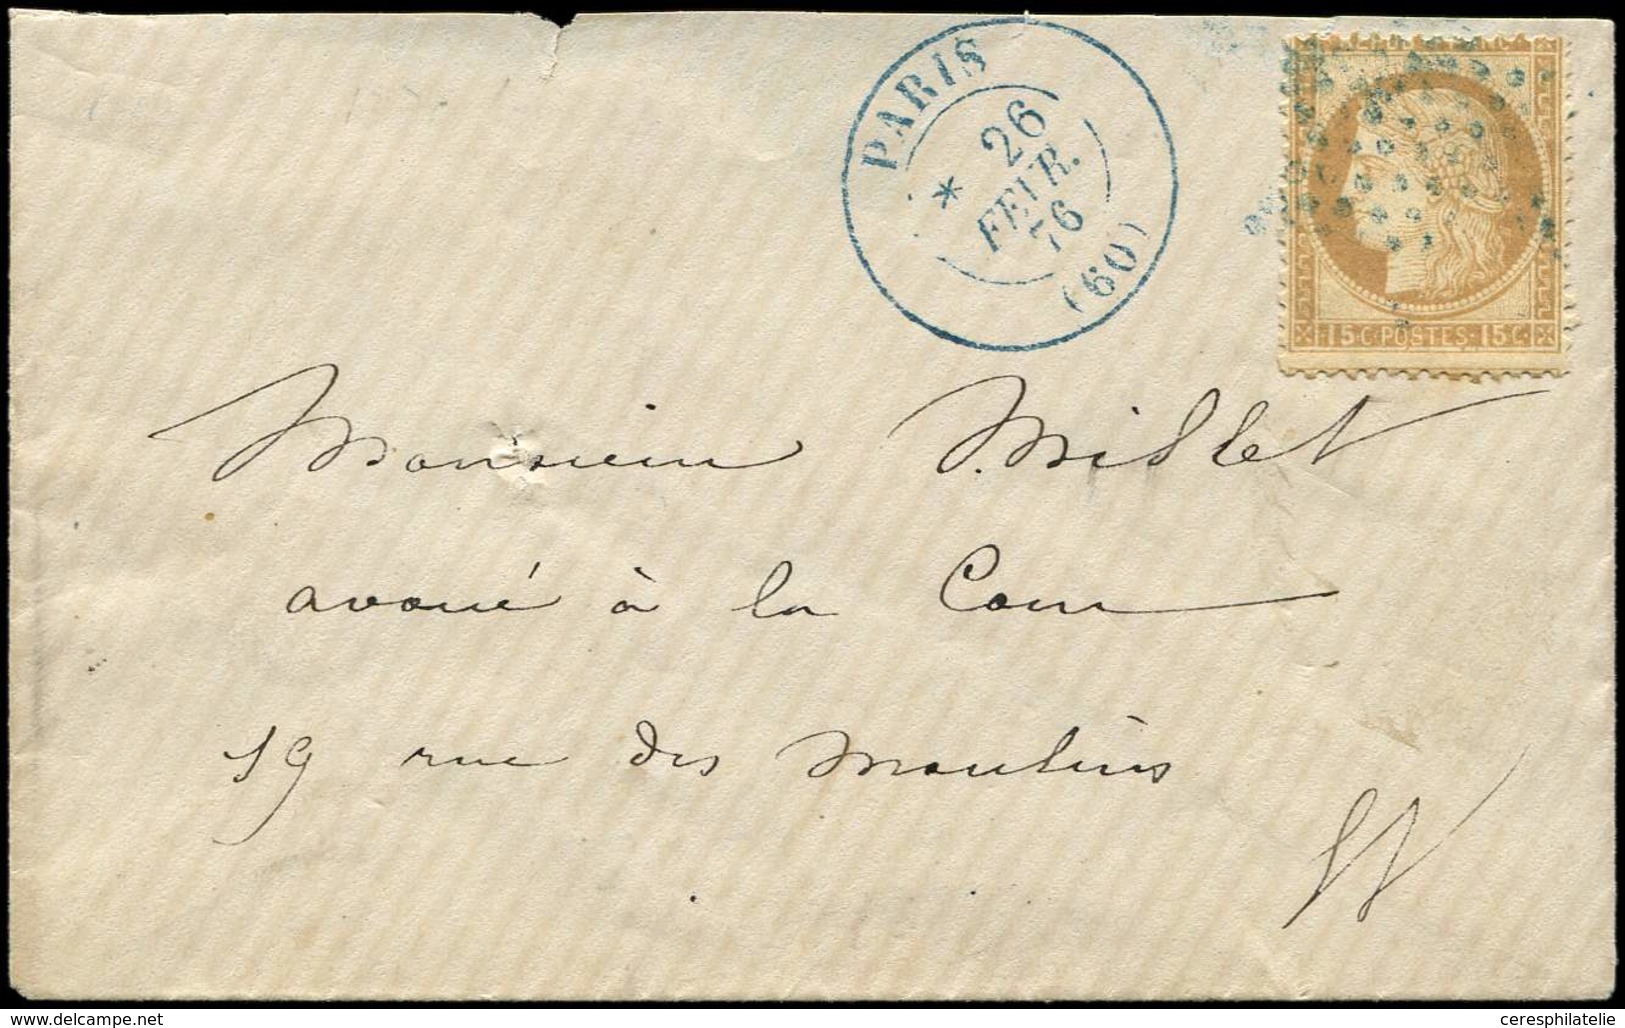 PARIS
* 26
FEVR.
76
(60)
15 C·POSTES·15 C
Monsieur Millet
avoué à la Cour
19 rue des Moulins
www.delcampe.net
ceresphilatelie